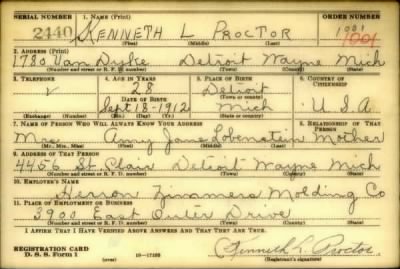 SERIAL NUMBER 1. NAME (Print) ORDER NUMBER
2440 KENNETH L PROCTOR 1001
(First) (Middle) (Last)
2. ADDRESS (Print)
1780 Van Dyke Detroit Wayne Mich
(Number and street or R. F. D. number) (Town) (County) (State)
3. TELEPHONE 4. AGE IN YEARS 5. PLACE OF BIRTH 6. COUNTRY OF CITIZENSHIP
28 Detroit
DATE OF BIRTH (Town or county)
Sept 18-1912 Mich U.S.A
(Exchange) (Number) (Mo.) (Day) (Yr.) (State or country)
7. NAME OF PERSON WHO WILL ALWAYS KNOW YOUR ADDRESS 8. RELATIONSHIP OF THAT PERSON
Mrs Amy Jane Lobenstein Mother
(Mr., Mrs., Miss) (First) (Middle) (Last)
9. ADDRESS OF THAT PERSON
4456 St Clair Detroit Wayne Mich
(Number and street or R. F. D. number) (Town) (County) (State)
10. EMPLOYER'S NAME
Herron Zimmers Molding Co
11. PLACE OF EMPLOYMENT OR BUSINESS
3900 East Outer Drive
(Number and street or R. F. D. number) (Town) (County) (State)
I AFFIRM THAT I HAVE VERIFIED ABOVE ANSWERS AND THAT THEY ARE TRUE.
REGISTRATION CARD
D. S. S. Form 1 16—17105 Kenneth L. Proctor